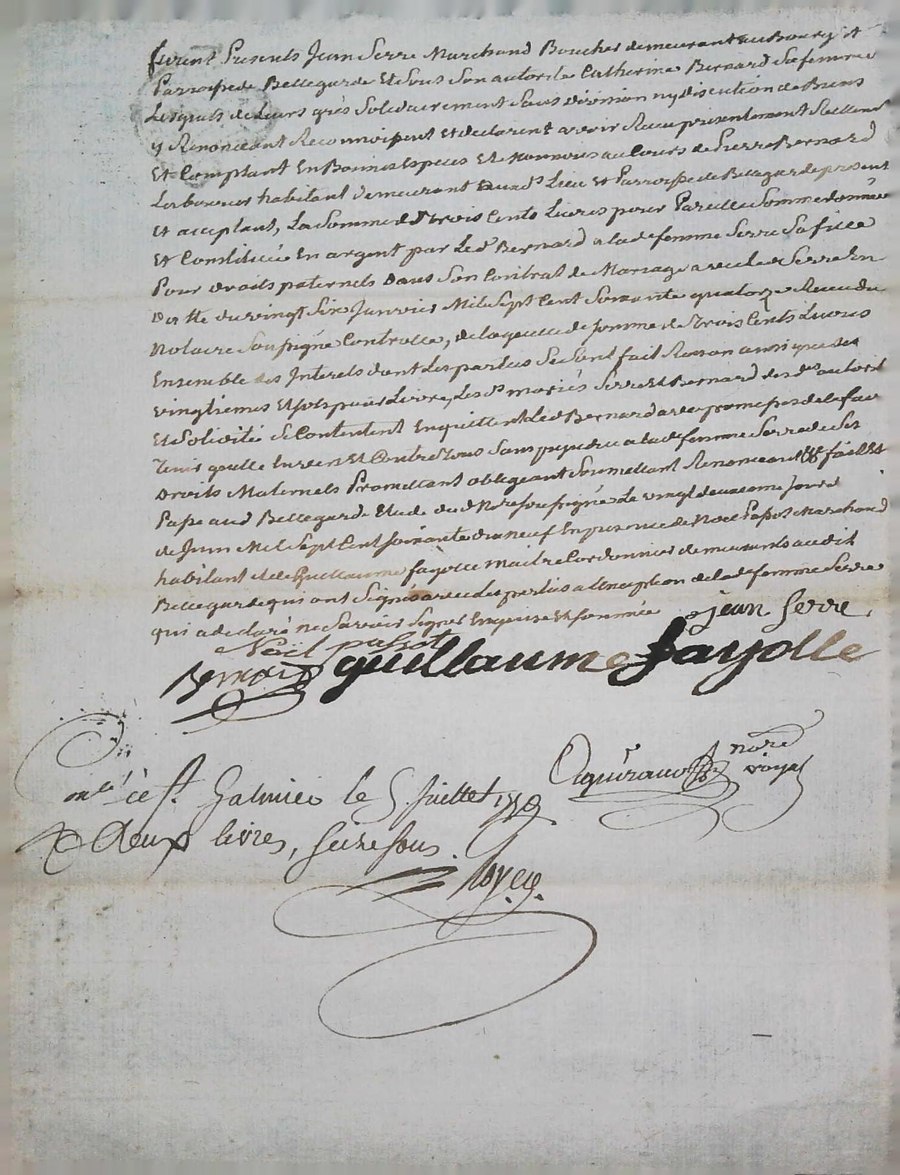 furent Presents Jean Serre Marchand Boucher demeurant au Bourg et
Parroisse de Bellegarde Et sous son autorité Catherine Bernard sa femme
Lesquels de Leurs grés Solidairement Sans Division ny discution de Biens
y Renonceant Reconnoissent Et declarent avoir Receu presentement Reellement
Et Comptant En Bonnes Especes Et Monnoies au Cours de Pierre Bernard
Laboureur habitant demeurant aud. Lieu Et Parroisse de Bellegarde present
Et acceptant, La Somme de Trois Cents Livres pour Pareille Somme donnée
Et Constituée En argent par Led. Bernard a lad. femme Serre Sa fille
Pour droits paternels Dans Son Contrat de Mariage avec led. Serre En
Datte du vingt Six Janvier Mil Sept Cent Soixante quatorze Receu du
Notaire Soussigné Controllé, de laquelle de Somme de Trois Cents Livres
Ensemble des Interets dont Les parties Se Sont fait Raison ainsi que des
vingtiemes Et Sols pour Livre, Les d. mariés Serre Et Bernard de d. autorité
Et Solidité Se Contentent En quittent Led. Bernard avec promesses de le faire
Tenir quitte Envers Et Contre Tous Sans prejudice a lad. femme Serre de Ses
Droits Maternels Promettant obligeant Soumettant Renonceant fait Et
Passé aud. Bellegarde Etude dud. Nore Soussigné Le vingt deuxieme jour
de Juin Mil Sept Cent Soixante dix neuf En presence de Noel Passot Marchand
habitant et de Guillaume fayolle Maitre Cordonnier demeurants audit
Bellegarde qui ont Signé avec les parties a l'exception de lad. femme Serre
qui a declaré ne Savoir Signer Enquise Et Sommée
jean Serre
Noel passot
Bernard guillaume fayolle
nore
royal
Contlé à St. Galmier le 5 Juillet 1779
R deux livres, seize sous.